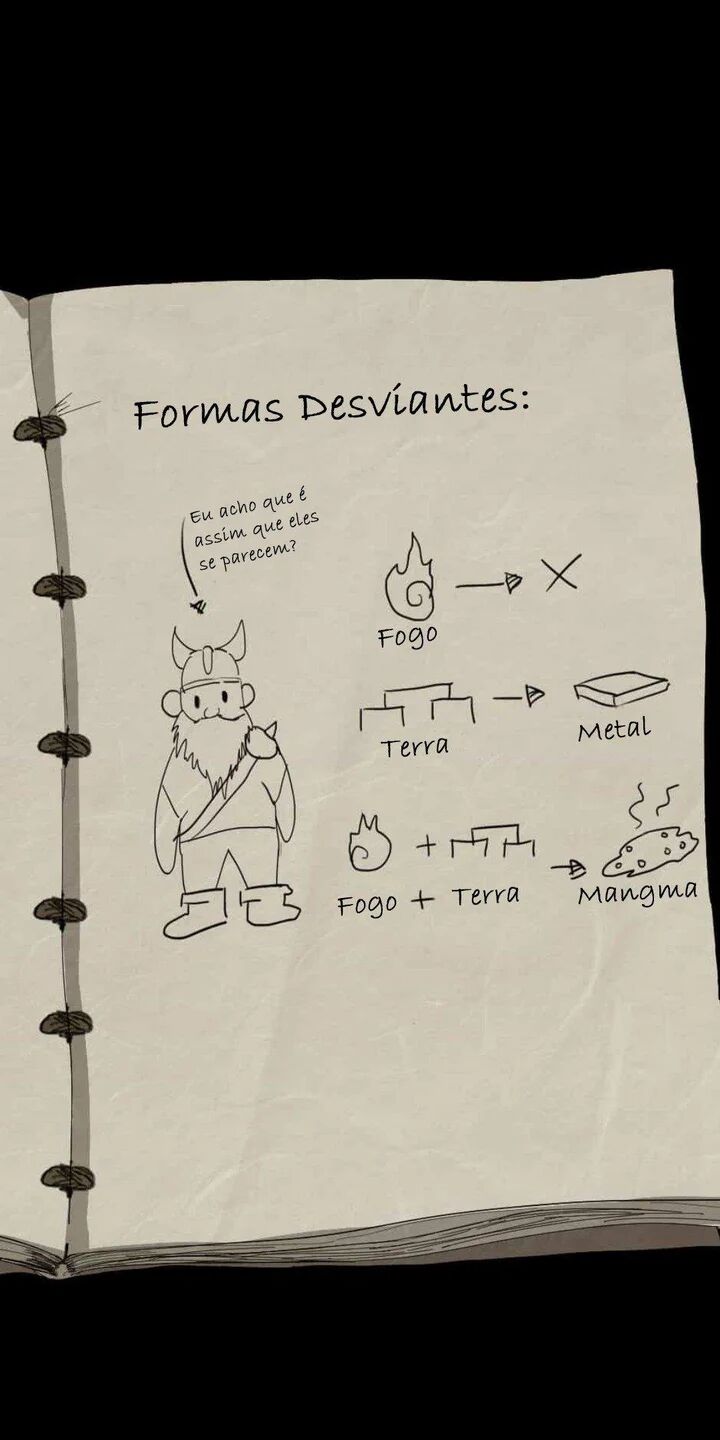 Formas Desviantes:
Eu acho que é
assim que eles
se parecem?
Fogo
Terra
Metal
Fogo + Terra
Mangma